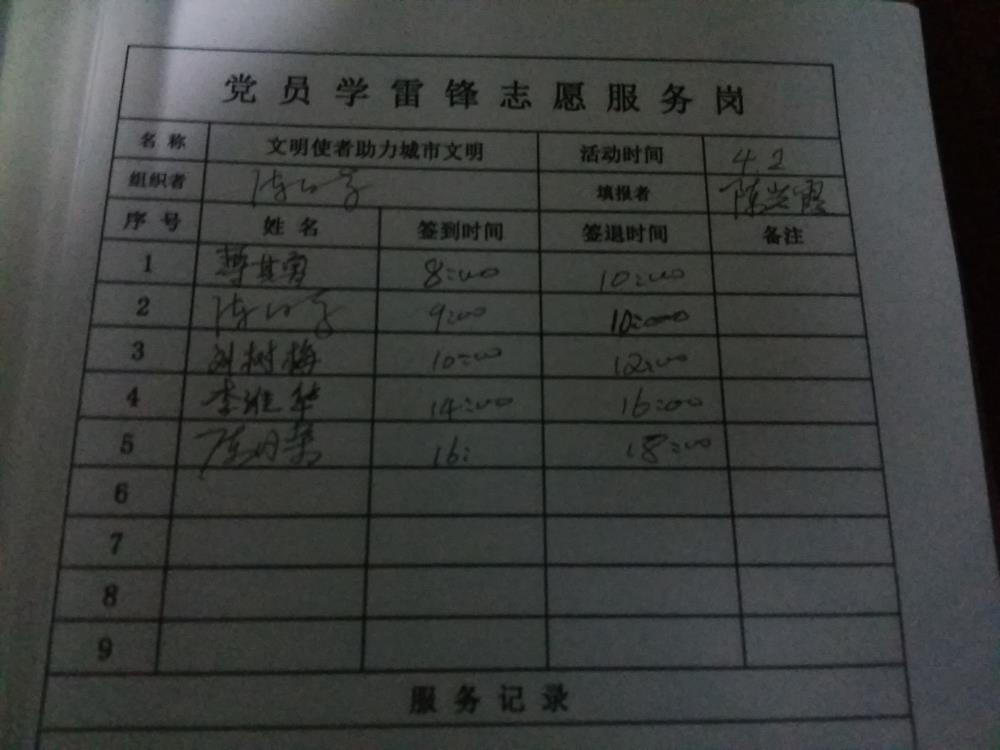 党员学雷锋志愿服务岗
名称 文明使者助力城市文明 活动时间 4.2
组织者 填报者 陈兴霞
序号 姓名 签到时间 签退时间 备注
1 8:00 10:00
2 9:00 10:00
3 刘树梅 10:00 12:00
4 李维华 14:00 16:00
5 16: 18:00
6
7
8
9
服务记录